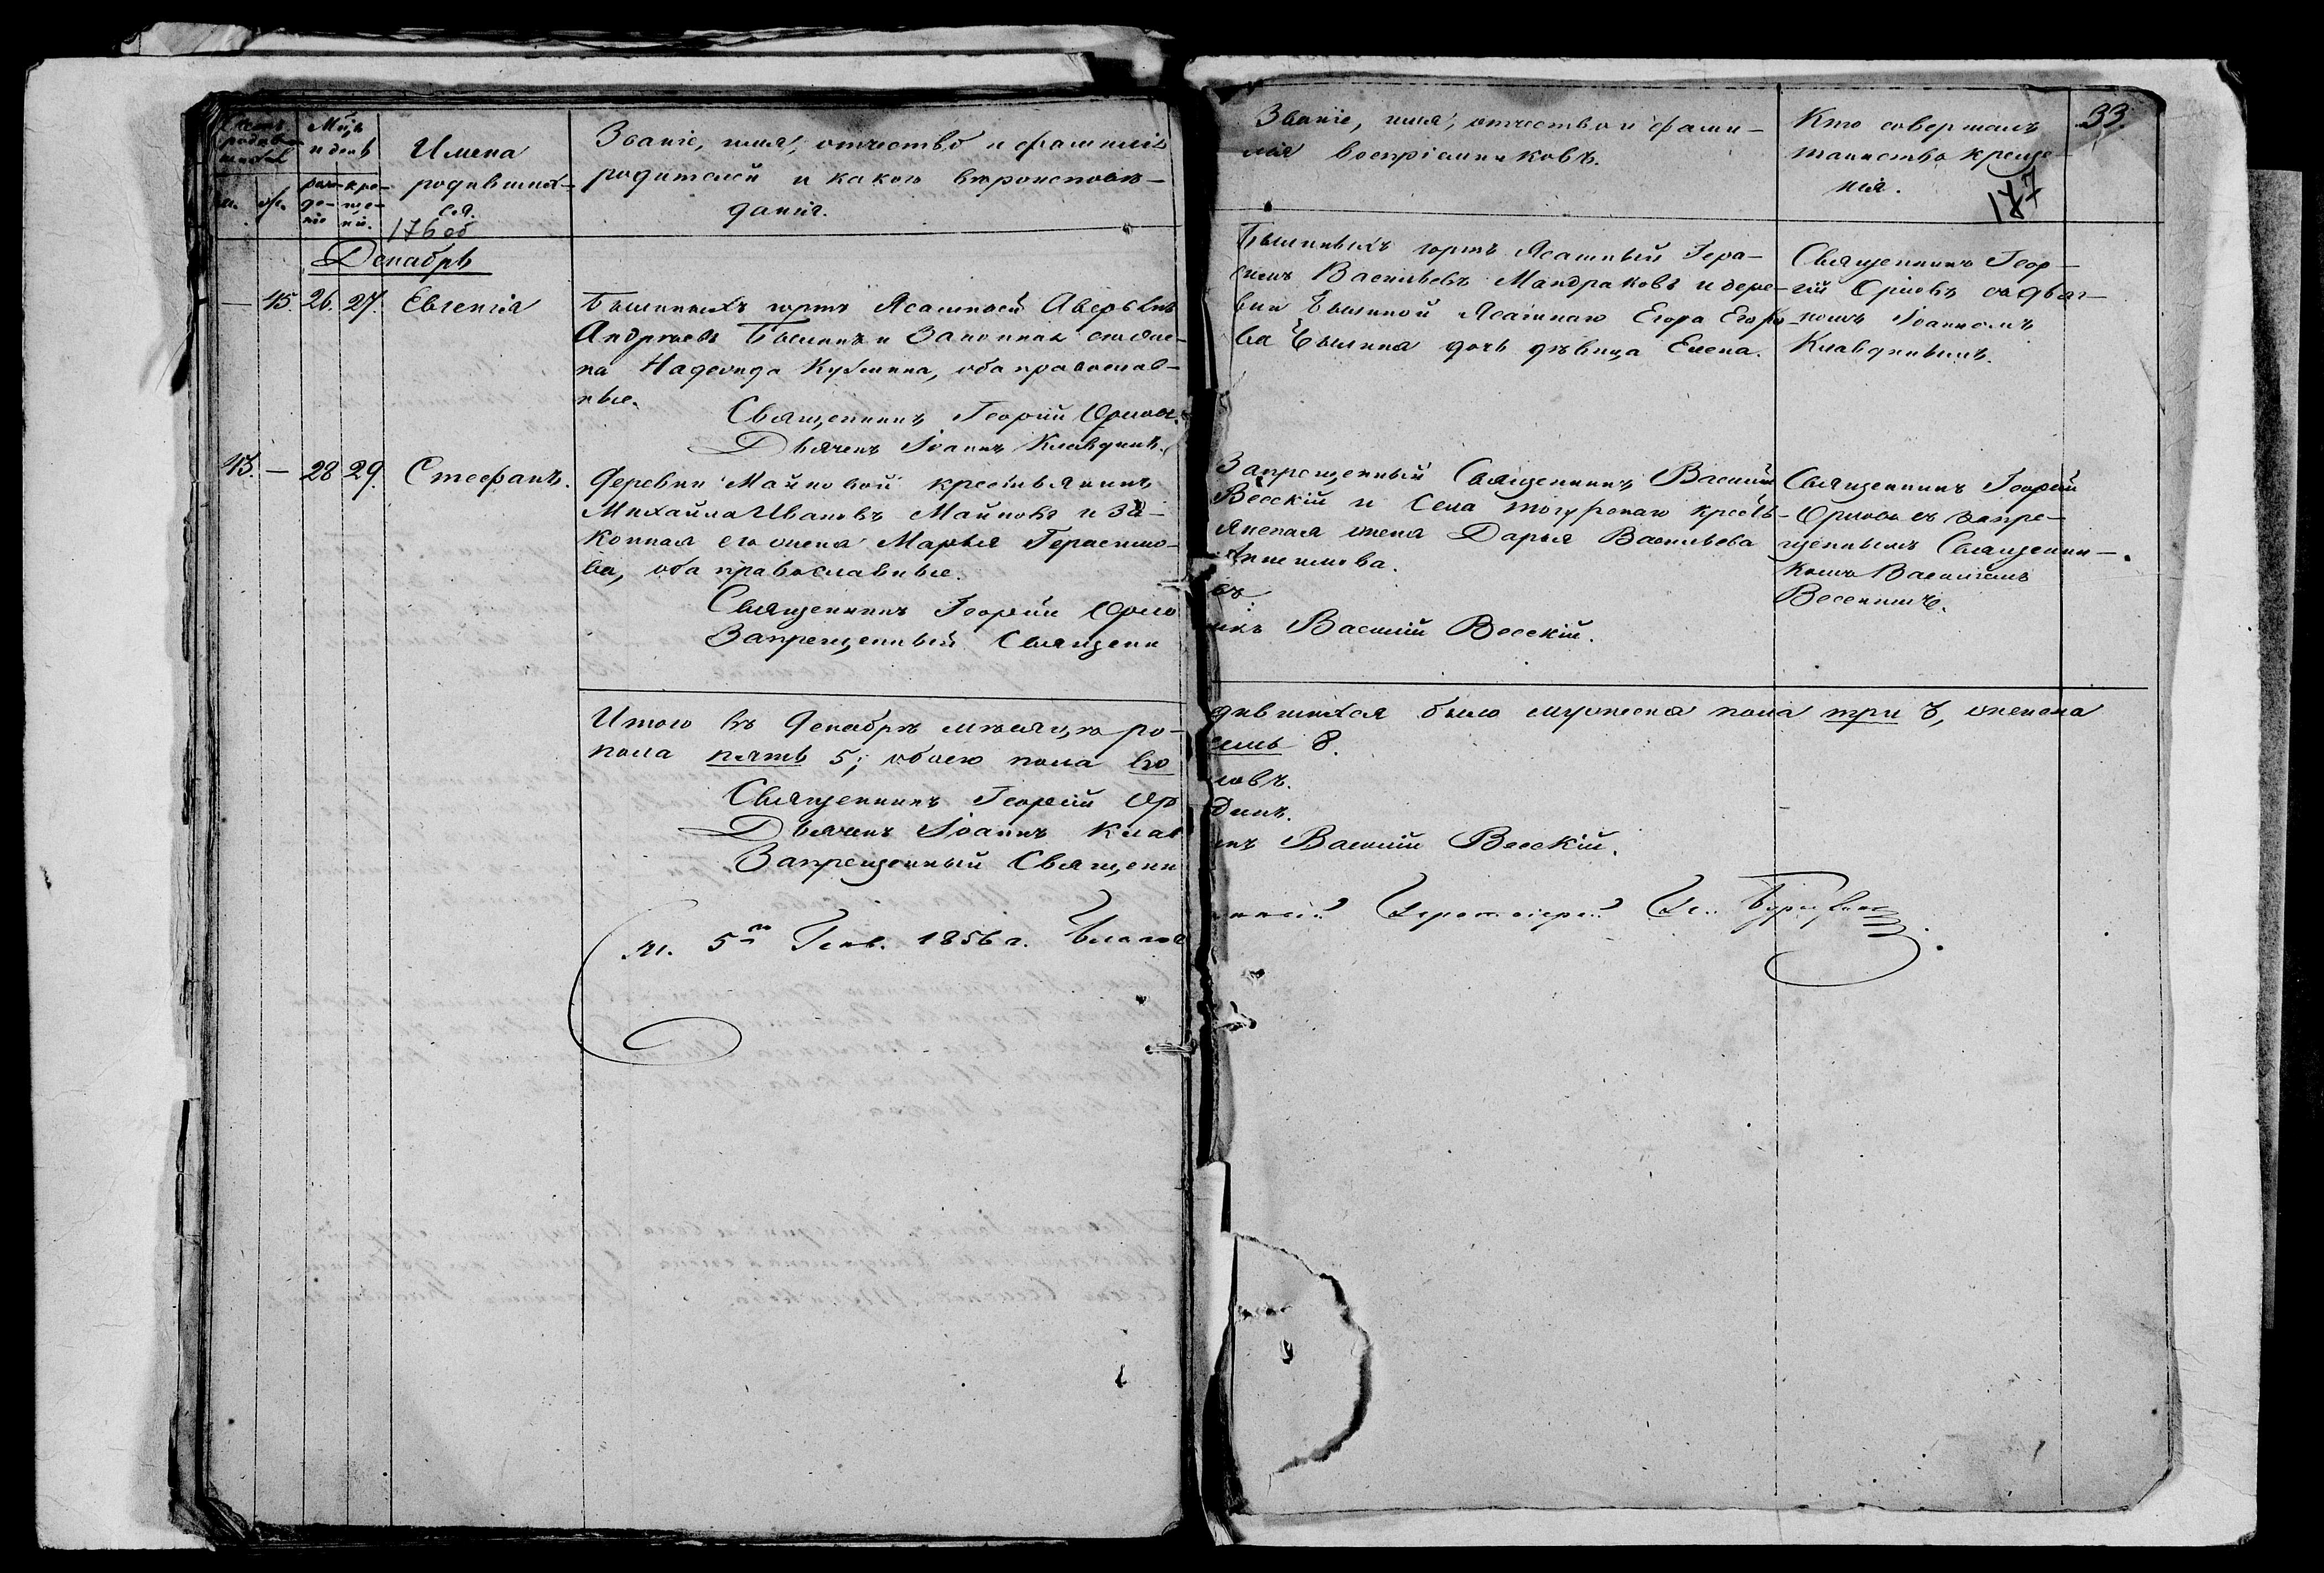 Мѣц. и день
Имена родившихся.
176 об
Званіе, имя, отчество и фамилія
родителей и какого вѣроисповѣ-
данія.
Званіе, имя, отчество и фами-
лія воспріемниковъ.
Кто совершалъ
таинство креще-
нія.
33.
177
м. ж. рож-де-ніе кре-ще-нія.
Декабрь
— 45. 26. 27. Евгенія
юртъ Ясашный Аверьянъ
Андреевъ и Законная его же-
на Надежда Кузмина, оба православ-
ные.
Священникъ Георгій Орловъ.
Дьячекъ Іоаннъ Клавдинъ.
юртъ Ясашный Гера-
симъ Васильевъ Мандраковъ и дере-
вни Ясашнаго Егора Егоро-
ва дочь дѣвица Елена.
Священникъ Геор-
гій Орловъ съ дьяч-
комъ Іоанномъ
Клавдинымъ.
43. — 28 29. Стефанъ.
Деревни Майковой крестьянинъ
Михайла Ивановъ Майковъ и За-
конная его жена Марья Герасимо-
ва, оба православные.
Священникъ Георгій Орло
Запрещенный Священн
Запрещенный Священникъ Василій
Весскій и Села Тогурскаго кресть-
янская жена Дарья Васильева
въ.
икъ Василій Весскій.
Священникъ Георгій
Орловъ съ запре-
щеннымъ Священни-
комъ Василіемъ
Весскимъ.
Итого въ Декабрѣ мѣсяцѣ ро-
дившихся было мужеска пола три 3, женска
пола пять 5; обоего пола во
семь 8.
Священникъ Георгій Ор
ловъ.
Дьячекъ Іоаннъ Клав
динъ.
Запрещенный Священн
икъ Василій Весскій.
5го Генв. 1856 г.